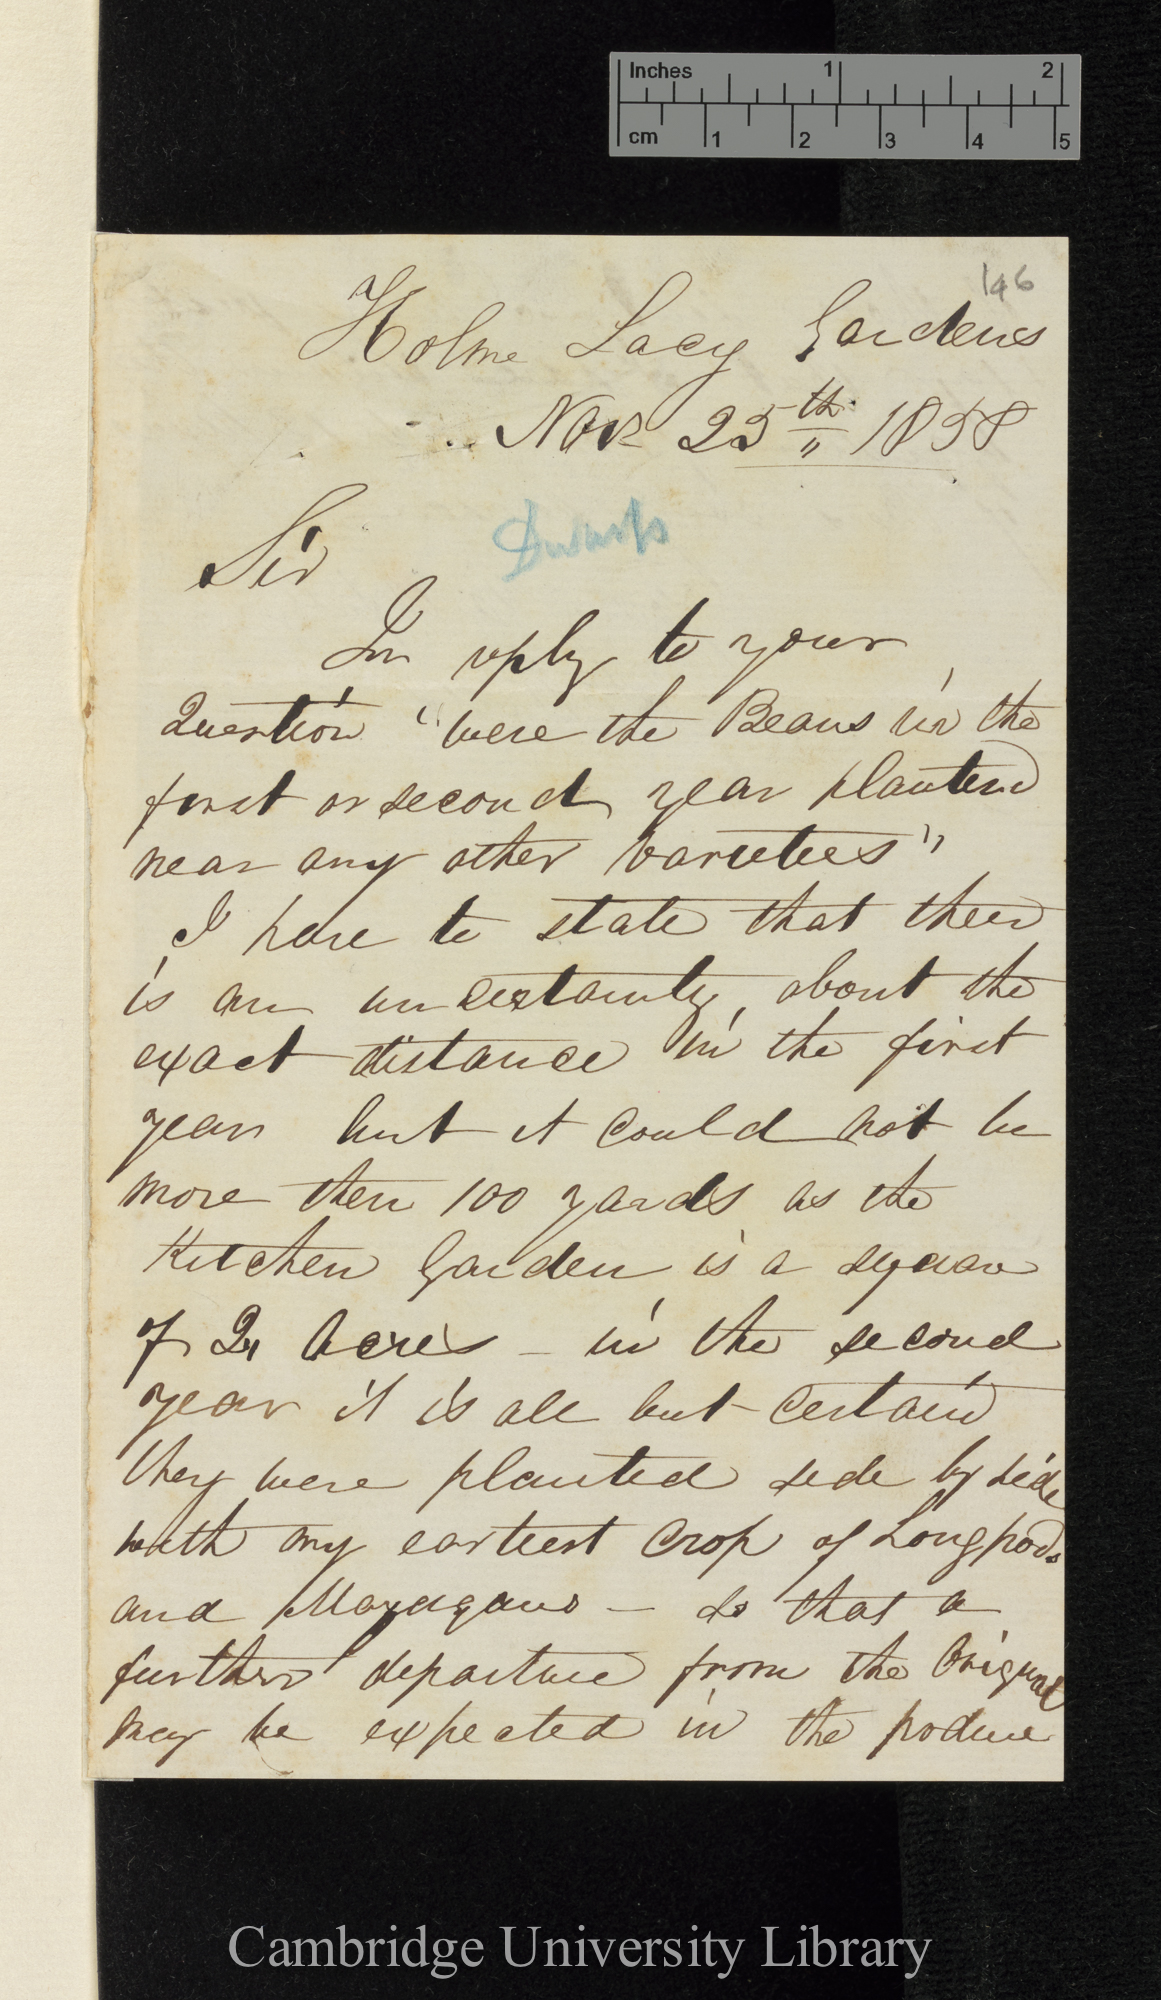 Inches 1 2
cm 1 2 3 4 5
146
Holme Lacy Gardens
Nov 25th „ 1858
Dwarfs
Sir
In reply to your
Question "were the Beans in the
first or second year planted
near any other varieties"
I have to state that their
is an uncertainty about the
exact distance in the first
year but it could not be
more then 100 yards as the
Kitchen Garden is a square
of 2„ Acres – in the second
year it is all but certain
they were planted side by side
with my earliest crop of Longpods
and Mazagans – so that a
further departure from the Original
may be expected in the produce
Cambridge University Library